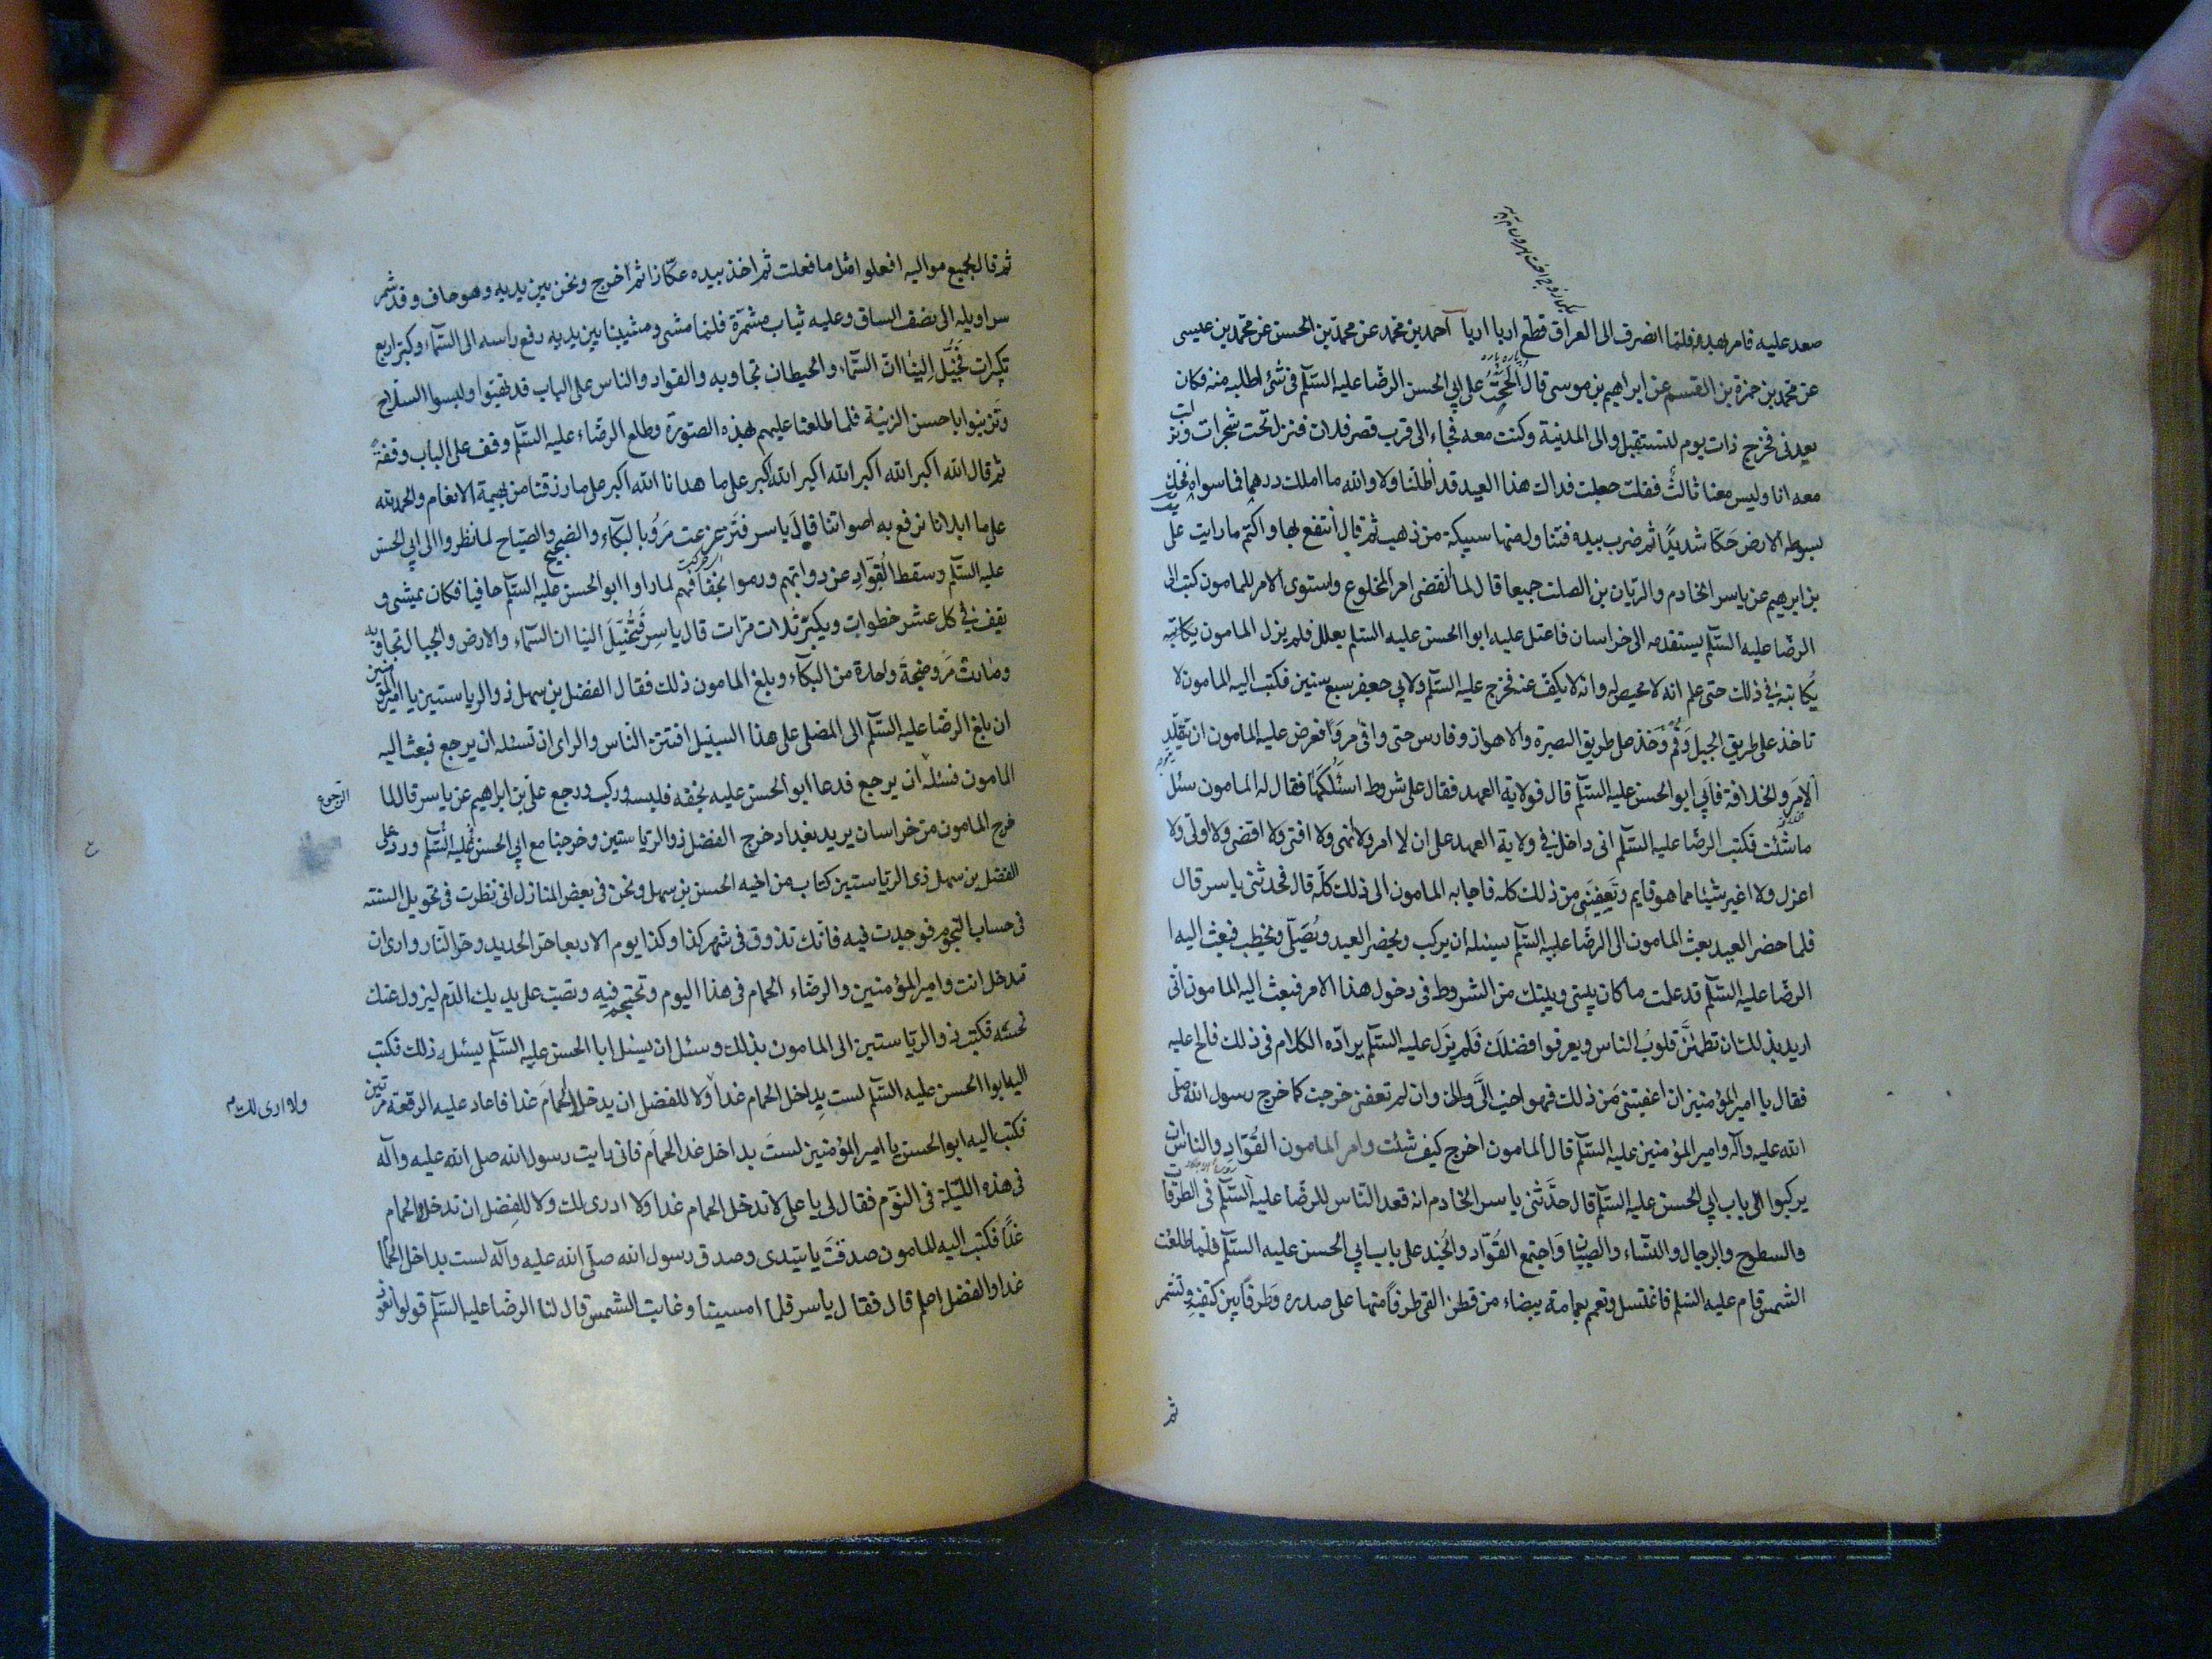 صعد عليه فامر بهدمه فلما انصرف الى العراق قطع اربا اربا احمد بن محمد عن محمد بن الحسن عن محمد بن عيسى
عن محمد بن حمزة بن القسم عن ابراهيم بن موسى قال الححت على ابي الحسن الرضا عليه السلم في شئ اطلبه منه فكان
يعدني فخرج ذات يوم ليستقبل والى المدينة وكنت معه فجاء الى قرب قصر فلان فنزل تحت شجرات ونزلت
معه انا وليس معنا ثالث فقلت جعلت فداك هذا العيد قد اظلنا ولا والله ما املك درهما فما سواه فحك
بسوطه الارض حكا شديدا ثم ضرب بيده فتناول منها سبيكة من ذهب ثم قال انتفع بها واكتم ما رايت على
بن ابرهيم عن ياسر الخادم والريان بن الصلت جميعا قال لما انقضى امر المخلوع واستوى الامر للمامون كتب الى
الرضا عليه السلم يستقدمه الى خراسان فاعتل عليه ابوا الحسن عليه السلم بعلل فلم يزل المامون يكاتبه
يكاتبه في ذلك حتى علم انه لا محيص له وانه لا يكف عنه فخرج عليه السلم ولابي جعفر سبع سنين فكتب اليه المامون لا
تاخذ على طريق الجبل وقم وخذ على طريق البصرة والاهواز وفارس حتى وافى مرو فعرض عليه المامون ان يتقلد
الامر والخلافة فابى ابو الحسن عليه السلم قال فولاية العهد فقال على شروط اسئلكها فقال له المامون سئل
ما شئت فكتب الرضا عليه السلم انى داخل في ولاية العهد على ان لا امر ولا انهى ولا افتى ولا اقضى ولا اولى ولا
اعزل ولا اغير شيئا مما هو قايم وتعفينى من ذلك كله فاجابه المامون الى ذلك كله قال فحدثنى ياسر قال
فلما حضر العيد بعث المامون الى الرضا عليه السلم يسئله ان يركب ويحضر العيد ويصلى ويخطب فبعث اليه ا
الرضا عليه السلم قد علمت ما كان بينى وبينك من الشروط في دخول هذا الامر فبعث اليه المامون انى
اريد بذلك ان تطمئن قلوب الناس ويعرفوا فضلك فلم يزل عليه السلم يراده الكلام في ذلك فالح عليه
فقال يا امير المؤمنين ان اعفيتنى من ذلك فهو احب الى وان لم تعفنى خرجت كما خرج رسول الله صلى
الله عليه وآله وامير المؤمنين عليه السلم قال المامون اخرج كيف شئت وامر المامون القواد والناس ان
يركبوا الى باب ابي الحسن عليه السلم قال حدثنى ياسر الخادم انه قعد الناس للرضا عليه السلم في الطرقات
والسطوح والرجال والنساء والصبيان واجتمع القواد والجند على باب ابي الحسن عليه السلم فلما طلعت
الشمس قام عليه السلم فاغتسل وتعمم بعمامة بيضاء من قطن القى طرفا منها على صدره وطرفا بين كتفيه وتشمر
ثم
ثم قال لجميع مواليه افعلوا مثل ما فعلت ثم اخذ بيده عكازا ثم اخرج ونحن بين يديه وهو حاف وقد شمر
سراويله الى نصف الساق وعليه ثياب مشمرة فلما مشى ومشينا بين يديه رفع راسه الى السماء وكبر اربع
تكبرات فخيل الينا ان السماء والحيطان تجاوبه والقواد والناس على الباب قد تهيئوا ولبسوا السلاح
وتزينوا باحسن الزينة فلما طلعنا عليهم بهذه الصورة وطلع الرضاء عليه السلم وقف على الباب وقفة
ثم قال الله اكبر الله اكبر الله اكبر الله اكبر على ما هدانا الله اكبر على ما رزقنا من بهيمة الانعام والحمد لله
على ما ابلانا نرفع به اصواتنا قال ياسر فتزعزعت مرو بالبكاء والضجيج والصياح لما نظروا الى ابي الحسن
عليه السلم وسقط القواد عن دوابهم ورموا بخفافهم لما راوا ابو الحسن عليه السلم حافيا فكان يمشى و
يقف في كل عشر خطوات ويكبر ثلاث مرات قال ياسر فتخيل الينا ان السماء والارض والجبال تجاوبه
وصارت مرو ضجة واحدة من البكاء وبلغ المامون ذلك فقال الفضل بن سهل ذوالرياستين يا امير المؤمنين
ان بلغ الرضا عليه السلم الى المصلى على هذا السبيل افتتن الناس والراى ان تسئله ان يرجع فبعث اليه
المامون فسئله ان يرجع فدعا ابو الحسن عليه بخفه فلبسه وركب ورجع على بن ابراهيم عن ياسر قال لما
الرجوع
خرج المامون من خراسان يريد بغداد خرج الفضل ذوالرياستين وخرجنا مع ابي الحسن عليه السلم ورد على
الفضل بن سهل ذى الرياستين كتاب من اخيه الحسن بن سهل ونحن في بعض المنازل انى نظرت في تحويل السنة
في حساب النجوم فوجدت فيه فانك تذوق في شهر كذا وكذا يوم الاربعا حر الحديد وحر النار وارى ان
تدخل انت وامير المؤمنين والرضاء الحمام في هذا اليوم وتحتجم فيه وتصب على يديك الدم ليزول عنك
نحسه فكتب ذوالرياستين الى المامون بذلك وسئل ان يسئل ابا الحسن عليه السلم يسئله ذلك فكتب
اليه ابوا الحسن عليه السلم لست بداخل الحمام غدا ولا للفضل ان يدخل الحمام غدا فاعاد عليه الرقعة مرتين
فكتب اليه ابو الحسن يا امير المؤمنين لست بداخل غدا الحمام فانى رايت رسول الله صلى الله عليه وآله
في هذه الليلة في النوم فقال لى يا على لا تدخل الحمام غدا ولا ارى لك ولا للفضل ان تدخل الحمام
غدا فكتب اليه المامون صدقت يا سيدى وصدق رسول الله صلى الله عليه وآله لست بداخل الحمام
غدا والفضل اعلم قال فقال ياسر فلما امسينا وغابت الشمس قال لنا الرضا عليه السلم قولوا نعوذ